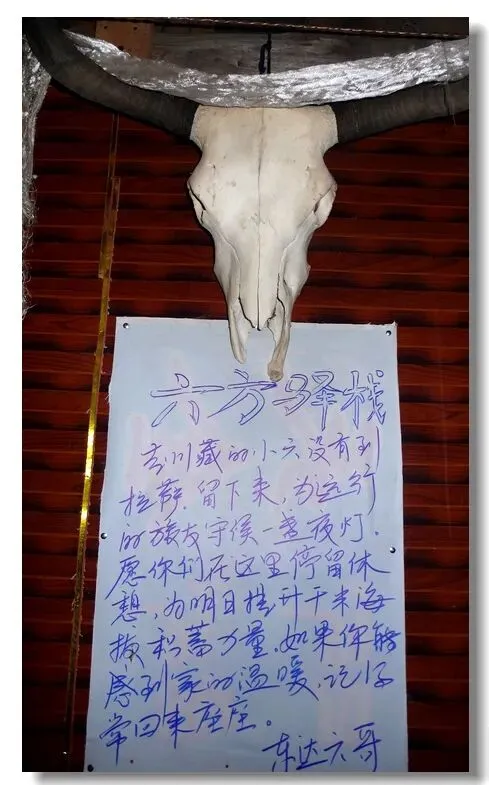 六方驿栈
去川藏的小六没有到
拉萨.留下来,为远行
的旅友守候一盏夜灯.
愿你们在这里停留休
憩,为明日提升千米海
拔积蓄力量.如果你能
感到家的温暖,记得
常回来座座。
东达六哥